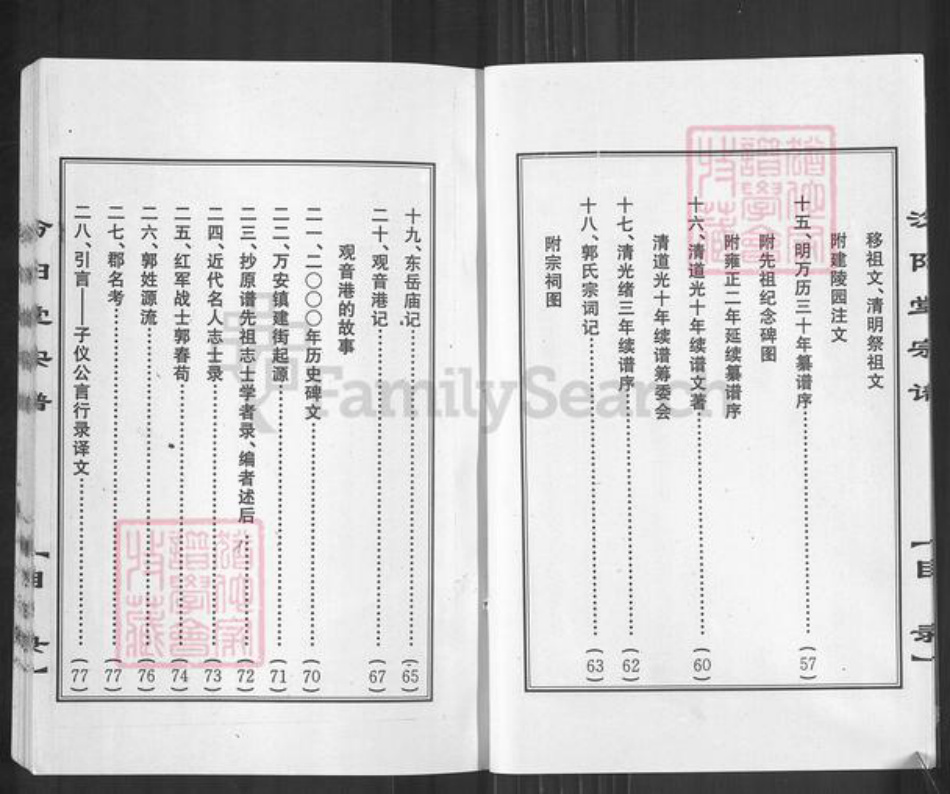 汾阳堂宗谱
【目录】
移祖文、清明祭祖文
附建陵园注文
十五、明万历三十年纂谱序……(57)
附先祖纪念碑图
附雍正二年延续纂谱序
十六、清道光十年续谱文著……(60)
清道光十年续谱筹委会
十七、清光绪三年续谱序……(62)
十八、郭氏宗词记……(63)
附宗祠图
十九、东岳庙记……(65)
二十、观音港记……(67)
观音港的故事
二一、二〇〇〇年历史碑文……(70)
二二、万安镇建街起源……(71)
二三、抄原谱先祖志士学者录、编者述后……(72)
二四、近代名人志士录……(73)
二五、红军战士郭春苟……(74)
二六、郭姓源流……(76)
二七、郡名考……(77)
二八、引言——子仪公言行录译文……(77)
汾阳堂宗谱
【目录】
FamilySearch